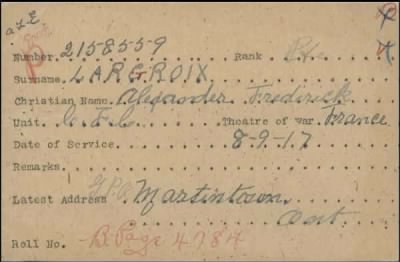 Number. 2158559 Rank Pte
Surname. LARGROIX
Christian Name. Alexander Frederick
Unit. C.F.C. Theatre of War. France
Date of Service. 8-9-17
Remarks.
Latest Address G.P.O. Martintown,
Ont.
Roll No. B. Page 4784